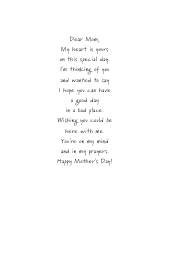 Dear Mom,
My heart is yours
on this special day
I'm thinking of you
and wanted to say
I hope you can have
a good day
in a bad place.
Wishing you could be
here with me.
You're on my mind
and in my prayers.
Happy Mother's Day!